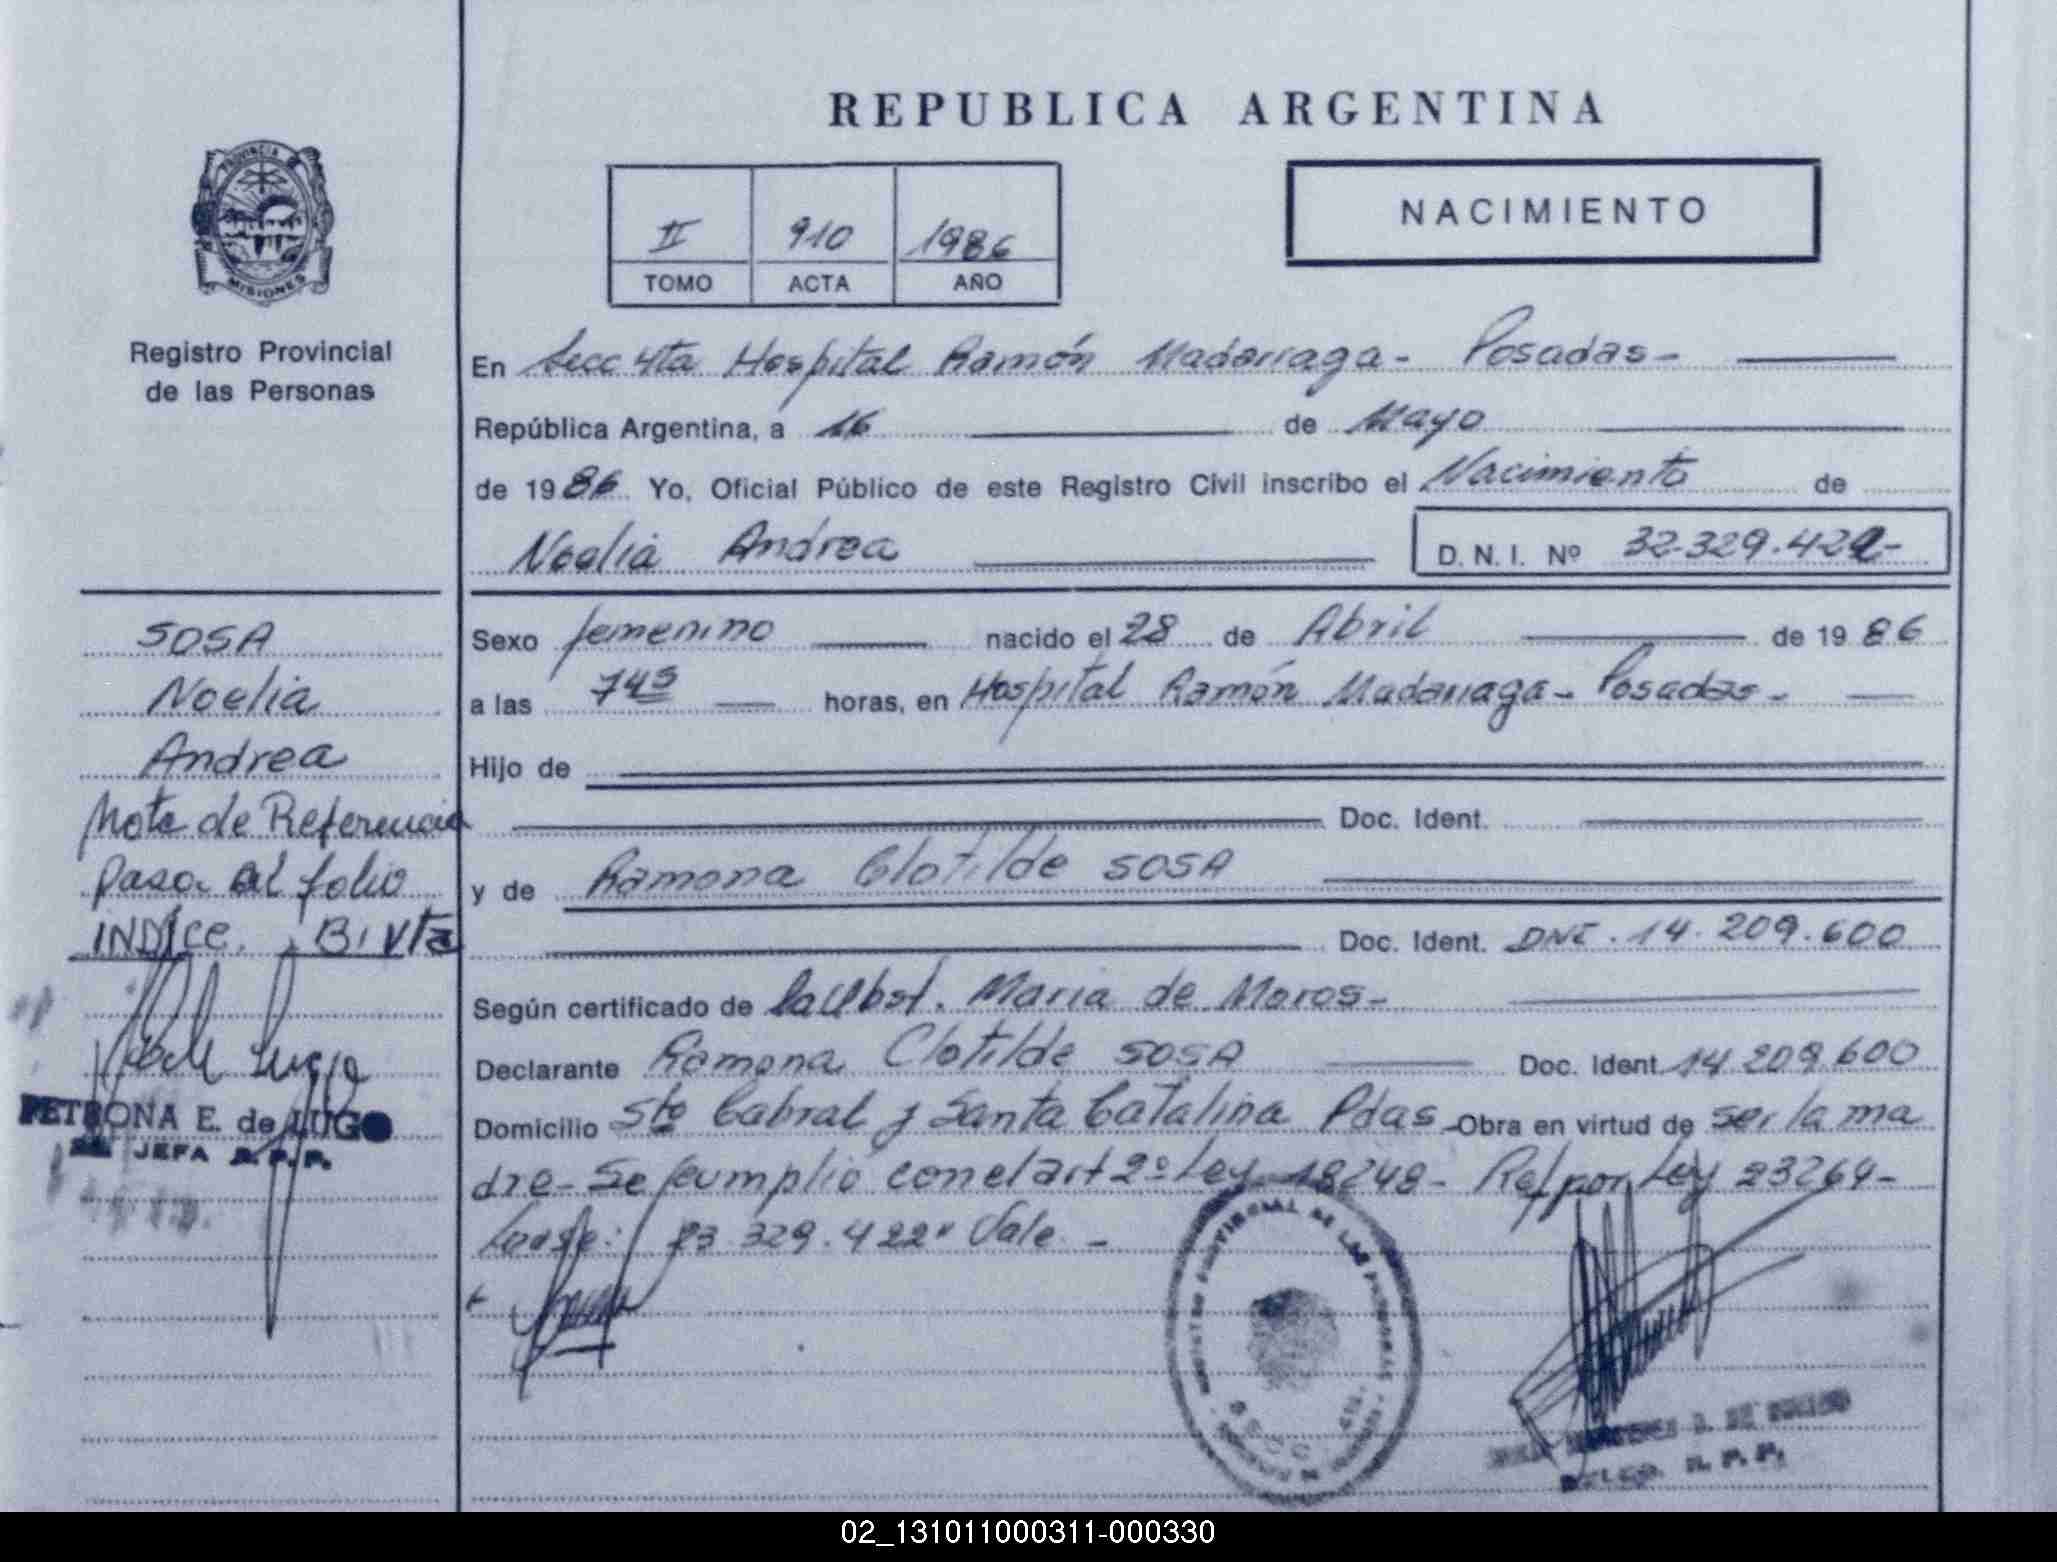 REPUBLICA ARGENTINA
PROVINCIA DE
MISIONES
Registro Provincial
de las Personas
II 910 1986
TOMO ACTA AÑO
NACIMIENTO
En Secc 4ta Hospital Ramón Madariaga - Posadas -
República Argentina, a 16 de Mayo
de 1986 Yo, Oficial Público de este Registro Civil inscribo el Nacimiento de
Noelia Andrea D. N. I. Nº 32.329.422-
SOSA
Noelia
Andrea
Nota de Referencia
pasa al folio
INDICE. B1 Vta
PETRONA E. de LUGO
JEFA R. P. P.
Sexo femenino nacido el 28 de Abril de 1986
a las 7 45 horas, en Hospital Ramón Madariaga - Posadas -
Hijo de
Doc. Ident.
y de Ramona Clotilde SOSA
Doc. Ident. DNI. 14.209.600
Según certificado de la Obst. Maria de Moros -
Declarante Ramona Clotilde SOSA Doc. Ident. 14 209.600
Domicilio Sto Cabral y Santa Catalina Pdas - Obra en virtud de ser la ma
dre - Se cumplió con el art 2º Ley 18248 - Ref por Ley 23264 -
329.422" Vale -
PROVINCIAL DE LAS PERSONAS
R. P. P.
02_131011000311-000330